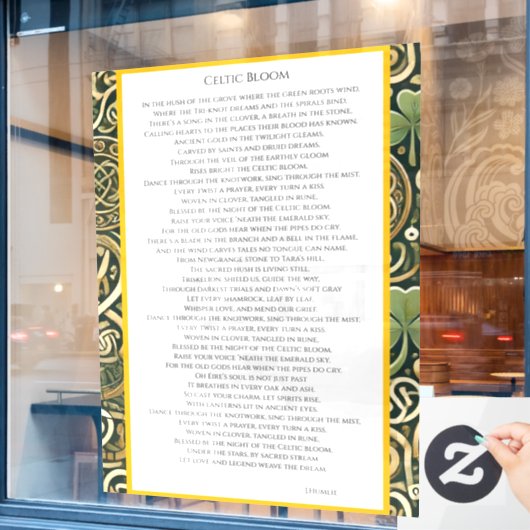 Celtic Bloom
In the hush of the grove where the green roots wind,
Where the Tri-knot dreams and the spirals bind,
There's a song in the clover, a breath in the stone,
Calling hearts to the places their blood has known.
Ancient gold in the twilight gleams,
Carved by saints and druid dreams,
Through the veil of the earthly gloom
Rises bright the Celtic Bloom.
Dance through the knotwork, sing through the mist,
Every twist a prayer, every turn a kiss.
Woven in clover, tangled in rune,
Blessed be the night of the Celtic Bloom.
Raise your voice 'neath the emerald sky,
For the old gods hear when the pipes do cry.
There's a blade in the branch and a bell in the flame,
And the wind carves tales no tongue can name.
From Newgrange stone to Tara's hill,
The sacred hush is living still,
Triskelion shield us, guide the way,
Through darkest trials and dawn's soft gray
Let every shamrock, leaf by leaf,
Whisper love, and mend our grief.
Dance through the knotwork, sing through the mist,
Every twist a prayer, every turn a kiss.
Woven in clover, tangled in rune,
Blessed be the night of the Celtic Bloom.
Raise your voice 'neath the emerald sky,
For the old gods hear when the pipes do cry.
Oh Éire's soul is not just past
It breathes in every oak and ash.
So cast your charm, let spirits rise,
With lanterns lit in ancient eyes.
Dance through the knotwork, sing through the mist,
Every twist a prayer, every turn a kiss.
Woven in clover, tangled in rune,
Blessed be the night of the Celtic Bloom.
Under the stars, by sacred stream
Let love and legend weave the dream
J.Humlie
Z